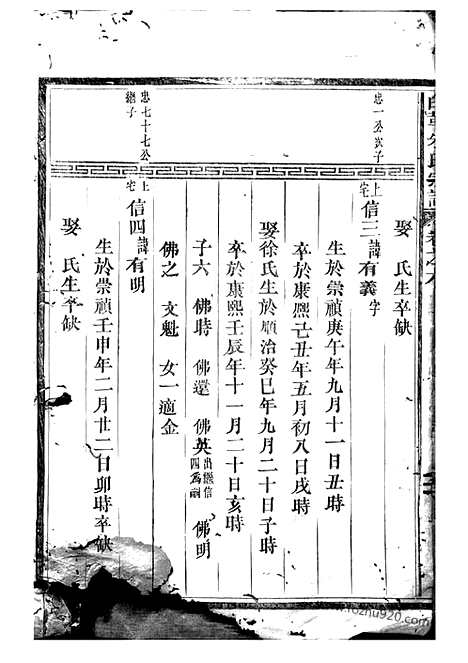 娶　氏生卒缺
忠一公次子
上宅
信三諱有義字
生於崇禎庚午年九月十一日丑時
卒於康熙己丑年五月初八日戌時
娶徐氏生於順治癸巳年九月二十日子時
卒於康熙壬辰年十一月二十日亥時
子六　佛時　佛還　佛英出繼信四爲嗣　佛明
佛之　文魁　女一適金
忠七十七公繼子
上宅
信四諱有明
生於崇禎壬申年二月廿二日卯時卒缺
娶　氏生卒缺